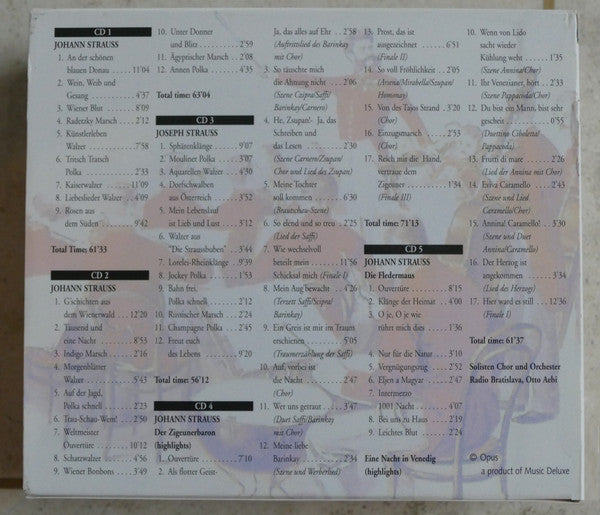 CD 1
JOHANN STRAUSS
1. An der schönen
blauen Donau ....... 11'04
2. Wein, Weib und
Gesang ............ 4'37
3. Wiener Blut ........ 8'09
4. Radetzky Marsch .... 2'12
5. Künstlerleben
Walzer ............. 7'58
6. Tritsch Tratsch
Polka .............. 2'33
7. Kaiserwalzer ....... 11'09
8. Liebeslieder Walzer .. 4'09
9. Rosen aus
dem Süden ......... 9'42
Total Time: 61'33
CD 2
JOHANN STRAUSS
1. G'schichten aus
dem Wienerwald .... 12'20
2. Tausend und
eine Nacht ......... 8'53
3. Indigo Marsch ...... 2'16
4. Morgenblätter
Walzer ............. 5'43
5. Auf der Jagd,
Polka schnell ....... 2'23
6. Trau-Schau-Wem! ... 2'50
7. Weltmeister
Ouvertüre ......... 10'12
8. Schatzwalzer ....... 4'56
9. Wiener Bonbons .... 3'49
10. Unter Donner
und Blitz ........... 2'59
11. Ägyptischer Marsch .. 2'08
12. Annen Polka ....... 4'35
Total time: 63'04
CD 3
JOSEPH STRAUSS
1. Sphärenklänge ...... 9'07
2. Mouliner Polka ..... 3'07
3. Aquarellen Walzer ... 4'30
4. Dorfschwalben
aus Österreich ...... 3'52
5. Mein Lebenslauf
ist Lieb und Lust .... 3'12
6. Walzer aus
"Die Straussbuben" .. 3'44
7. Lorelei-Rheinklänge .. 9'39
8. Jockey Polka ....... 1'53
9. Bahn frei,
Polka schnell ....... 2'12
10. Russischer Marsch ... 2'24
11. Champagne Polka ... 2'45
12. Freut euch
des Lebens ......... 9'20
Total time: 56'12
CD 4
JOHANN STRAUSS
Der Zigeunerbaron
(highlights)
1. Ouvertüre .......... 7'10
2. Als flotter Geist-
Ja, das alles auf Ehr .. 2'58
(Auftrittslied des Barinkay
mit Chor)
3. So täuschte mich
die Ahnung nicht .... 2'06
(Szene Czipra/Saffi/
Barinkay/Carnero)
4. He, Zsupan!- Ja, das
Schreiben und
das Lesen .......... 2'30
(Szene Carnero/Zsupan/
Chor und Lied des Zsupan)
5. Meine Tochter
soll kommen ........ 6'30
(Brautschau-Szene)
6. So elend und so treu .. 2'25
(Lied der Saffi)
7. Wie wechselvoll
beteilt mein ........ 11'56
Schicksal mich (Finale I)
8. Mein Aug'bewacht ... 4'26
(Terzett Saffi/Szipra/
Barinkay)
9. Ein Greis ist mir im Traum
erschienen ......... 5'05
(Traumerzählung der Saffi)
10. Auf, vorbei ist
die Nacht .......... 2'47
11. Wer uns getraut ..... 3'47
(Duet Saffi/Barinkay
mit Chor)
12. Meine liebe
Barinkay ........... 2'34
(Szene und Werberlied)
13. Prost, das ist
ausgezeichnet ....... 6'51
(Finale II)
14. So voll Fröhlichkeit .. 2'05
(Arsena/Mirabella/Szupan/
Homonay)
15. Von des Tajos Strand . 3'20
(Chor)
16. Einzugsmarsch ..... 2'53
(Chor)
17. Reich mir die Hand,
vertraue dem
Zigeuner ........... 1'34
(Finale III)
Total time: 71'13
CD 5
JOHANN STRAUSS
Die Fledermaus
1. Ouvertüre .......... 8'15
2. Klänge der Heimat ... 4'00
3. O je, O je wie
rührt mich dies ..... 1'36
4. Nur für die Natur .... 3'10
5. Vergnügungszug .... 2'52
6. Eljen a Magyar ...... 2'47
7. Intermezzo
1001 Nacht ......... 4'07
8. Bei uns zu Haus ..... 2'19
9. Leichtes Blut ....... 2'24
Eine Nacht in Venedig
(highlights)
10. Wenn von Lido
sacht wieder
Kühlung weht ....... 1'35
(Szene Annina/Chor)
11. Ihr Venezianer, hört .. 2'33
(Szene Pappacoda/Chor)
12. Du bist ein Mann, bist sehr
gescheit ............ 0'55
(Duettino Ciboletta/
Pappacoda)
13. Frutti di mare ....... 2'26
(Lied der Annina mit Chor)
14. Eviva Caramello ..... 2'43
(Szene und Lied
Caramello/Chor)
15. Annina! Caramello! .. 3'30
(Szene und Duet
Annina/Caramello)
16. Der Herzog ist
angekommen ....... 3'34
(Lied des Herzogs)
17. Hier ward es still ... 12'36
(Finale I)
Total time: 61'37
Solisten Chor und Orchester
Radio Bratislava, Otto Aebi
© Opus
a product of Music Deluxe